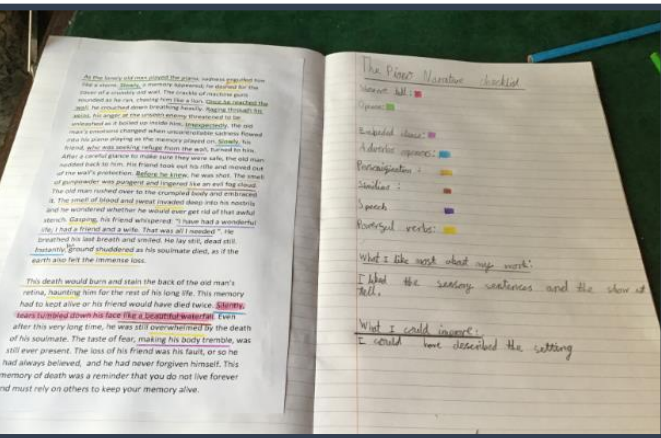 As the lonely old man played the piano, sadness engulfed him
like a storm. Slowly, a memory appeared; he dashed for the
cover of a crumbly old wall. The crackle of machine guns
sounded as he ran, chasing him like a lion. Once he reached the
wall, he crouched down breathing heavily. Raging through his
veins, his anger at the unseen enemy threatened to be
unleashed as it boiled up inside him. Unexpectedly, the old
man's emotions changed when uncontrollable sadness flowed
into his piano playing as the memory played on. Slowly, his
friend, who was seeking refuge from the wall, turned to him.
After a careful glance to make sure they were safe, the old man
nodded back to him. His friend took out his rifle and moved out
of the wall's protection. Before he knew, he was shot. The smell
of gunpowder was pungent and lingered like an evil fog cloud.
The old man rushed over to the crumpled body and embraced
it. The smell of blood and sweat invaded deep into his nostrils
and he wondered whether he would ever get rid of that awful
stench. Gasping, his friend whispered: "I have had a wonderful
life; I had a friend and a wife. That was all I needed". He
breathed his last breath and smiled. He lay still, dead still.
Instantly, ground shuddered as his soulmate died, as if the
earth also felt the immense loss.
This death would burn and stain the back of the old man's
retina, haunting him for the rest of his long life. This memory
had to kept alive or his friend would have died twice. Silently,
tears tumbled down his face like a beautiful waterfall. Even
after this very long time, he was still overwhelmed by the death
of his soulmate. The taste of fear, making his body tremble, was
still ever present. The loss of his friend was his fault, or so he
had always believed, and he had never forgiven himself. This
memory of death was a reminder that you do not live forever
nd must rely on others to keep your memory alive.
The Piano Narrative checklist
tell:
Openers:
Embedded clause:
Adverbial openers:
Personification:
Similies:
Speech
Powerful verbs:
What I like most about my work:
I liked the sensory sentences and the show not
tell.
What I could improve:
I could have described the setting